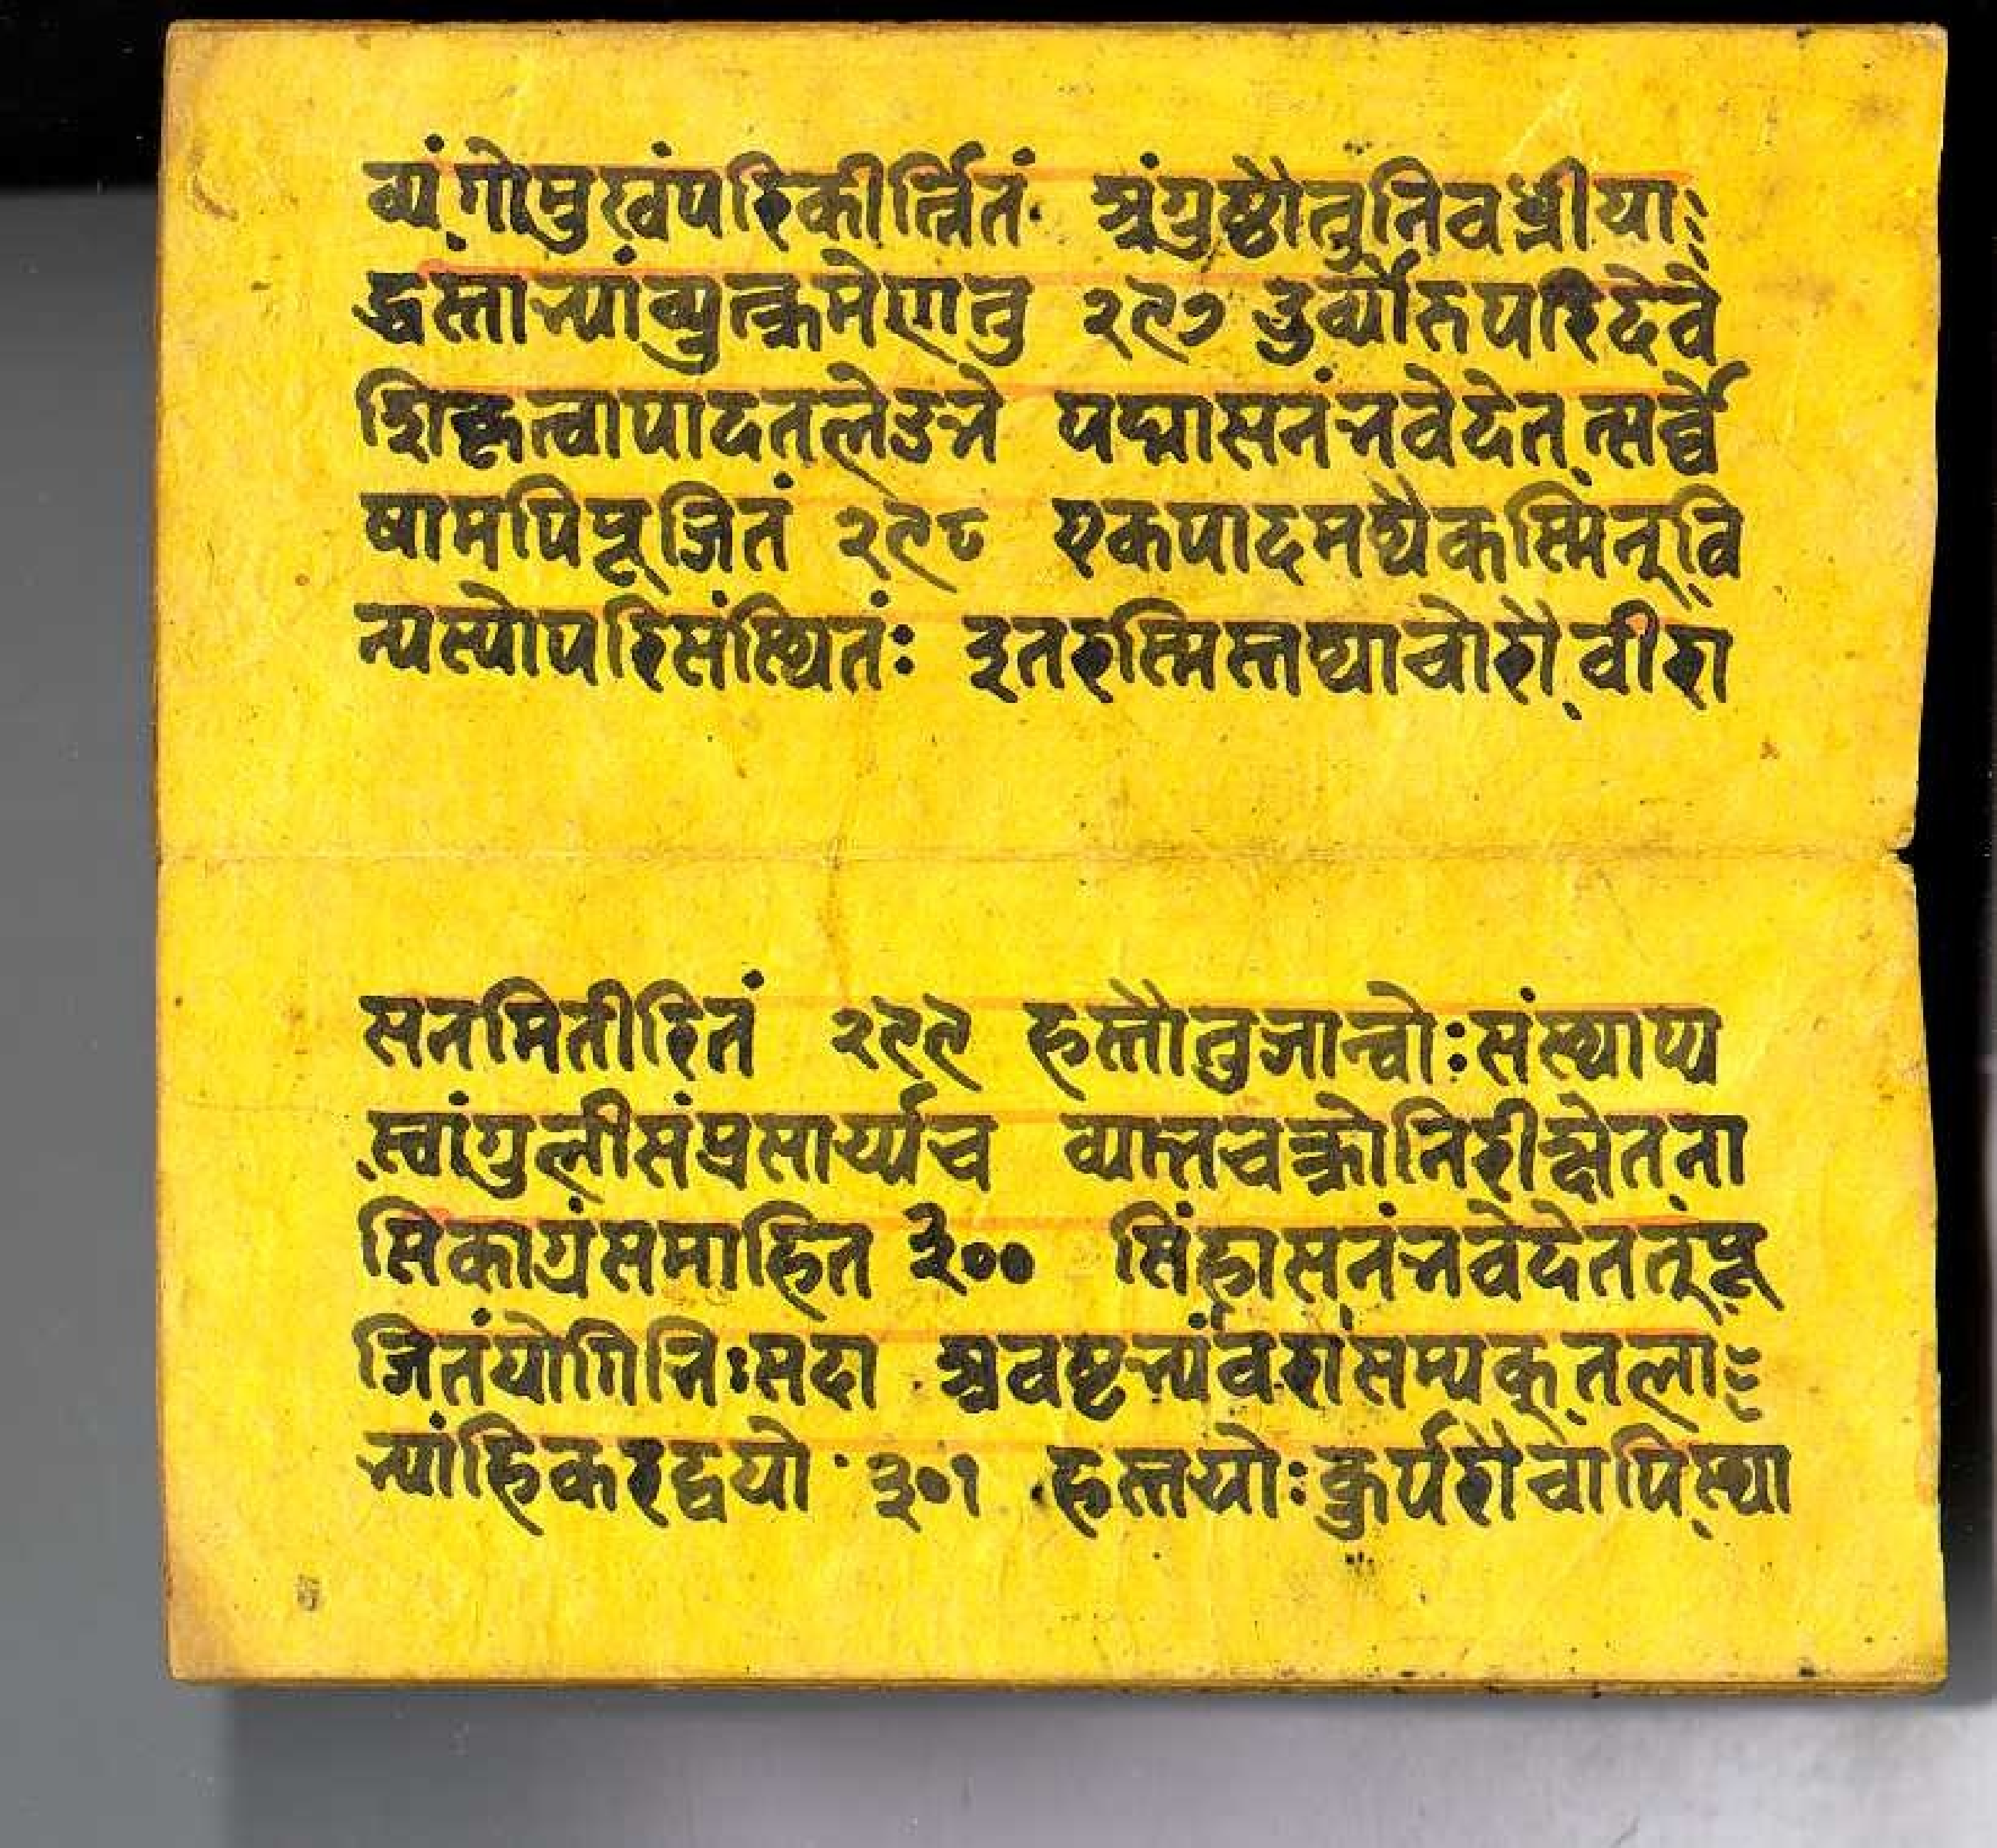 व्यंगोमुखंपरिकीर्त्तितं अंगुष्ठौतुनिवध्नीया
द्धस्ताभ्यांव्युत्क्रमेणतु २९७ उर्व्योरुपरिदेवे
शिकृत्वापादतलेउभे पद्मासनंभवेदेतत्सर्व्वे
षामपिपूजितं २९८ एकपादमथैकस्मिन्वि
न्यस्योपरिसंस्थितः इतरस्मिस्तथाचोरौवीरा
सनमितीरितं २९९ हस्तौतुजान्वोःसंस्थाप्य
स्वांगुलीसंप्रसार्य्यच व्यात्तवक्त्रोनिरीक्षेतना
सिकाग्रंसमाहित ३०० सिंहासनंभवेदेतत्पू
जितंयोगिभिःसदा अवष्टभ्यंवरांसम्यक्तला
भ्यांहिकरद्वयो ३०१ हस्तयोःकुर्परौचापिस्था